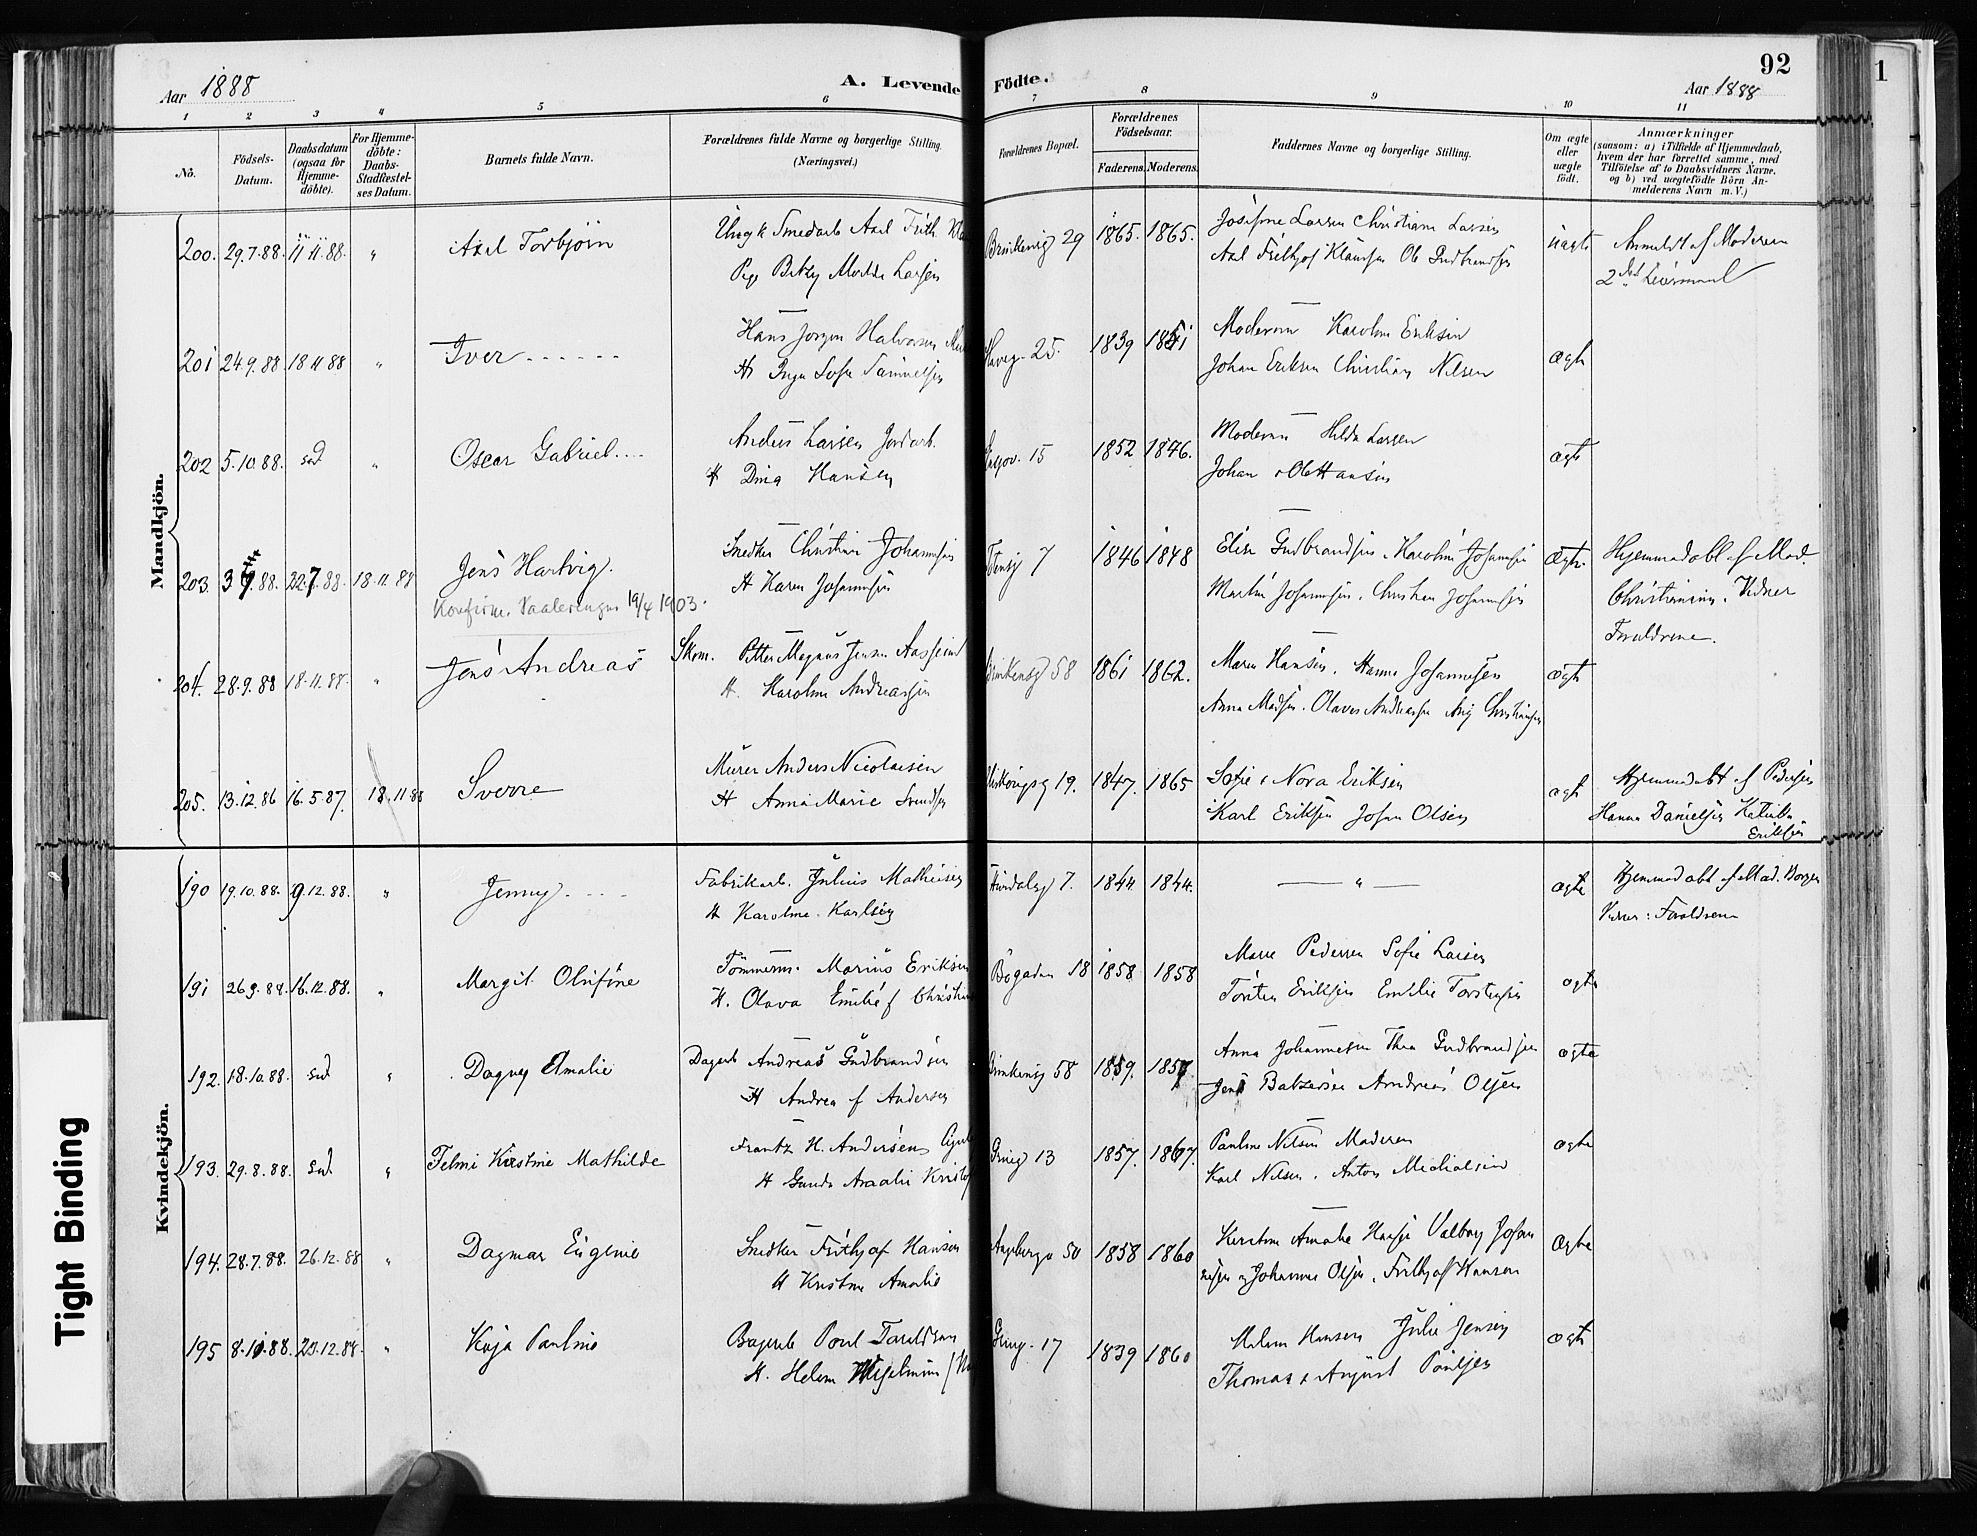 Aar 1888
A. Levende Födte.
92
Aar 1888
1
1 2 3 4 5 6 7 8 9 10 11
No.
Födsels-Datum.
Daabsdatum (ogsaa for Hjemme-döbte).
For Hjemme-döbte: Daabs-Stadfæstel-ses Datum.
Barnets fulde Navn.
Forældrenes fulde Navne og borgerlige Stilling.
(Næringsvei.)
Forældrenes Bopæl.
Forældrenes Födselsaar.
Faderens. Moderens.
Faddernes Navne og borgerlige Stilling.
Om ægte eller uægte födt.
Anmærkninger
(saasom: a) i Tilfælde af Hjemmedaab,
hvem der har forrettet samme, med
Tilföielse af to Daabsvidners Navne.
og b) ved uægtefödte Börn An-
melderens Navn m. V.)
Mandkjön.
200. 29.7.88. 11.11.88. " Axel Torbjörn
Ungk Smedarb Axel Frith.
Pige Betzy Larsen
29 1865. 1865.
Josefine Larsen Christiane Larsen
Axel Frithjof Ole Gudbrandsen
uægte
Anmeldt af Moderen
2det Leiermaal
201 24.9.88 18 11 88 " Iver
Hans Jorgen Halvorsen
H Inga Sofie
25. 1839 1851
Moderen Karoline Eriksen
Johan Eriksen Christian Nilsen
ægte
202 5.10.88. sad " Oscar Gabriel
Anders Larsen Jordarb.
H Dina Hansen
15 1852 1846.
Moderen Hilda Larsen
Johan & Ole Hansen
ægte
203. 3 7.88. 22.7.88. 18.11.88 Jens Hartvig.
Konfirm. Vaalerengen 19/4 1903.
Snedker Christian Johannesen
H Karen Johannesen
7 1846 1848
Elise Gudbrandsen. Karoline Johannesen
Martin Johannesen. Christian Johannesen
Ægte.
Hjemmedøbt af Mad.
Christiansen. Vidner
Forældrene.
204. 28.9.88 18.11.88. " Jens Andreas
Skom. Petter Magnus Jensen
H. Karoline Andreassen
58 1861 1862.
Maren Hansen. Hanna Johannesen
Anna Madsen. Olaves Andreassen
ægte
205. 13.12.86 16.5.87. 18.11 88 Sverre
Murer Anders Nicolaisen
H Anna Marie Svendsen
19. 1847. 1865
Sofie & Nora Eriksen
Karl Eriksen Johan Olsen
ægte
Hjemmedøbt af Pedersen
Hanna Danielsen
Eriksen
Kvindekjön.
190 19.10.88. 9.12.88. " Jenny
Fabrikarb. Julius Mathisen
H Karoline Karlsen
7. 1844 1844.
— " —
ægte
Hjemmedøbt af Mad. Borgen
Vidner: Forældrene
191 26.9.88. 16.12.88. " Margit Olufine
Tömmerm. Marius Eriksen
H. Olava Emilie f Christian
Bögaden 18 1858 1858
Marie Pedersen Sofie Larsen
Torsten Eriksen Emilie Torstensen
ægte
192. 18.10.88. sad " Dagny Amalie
Dagarb Andreas Gudbrandsen
H Andrea f Andersen
58 1859. 1857.
Anna Johannesen Thea Gudbrandsen
Jens Baltzersen Andreas Olsen
ægte
193. 29.8.88. sad " Telmi Kirstine Mathilde
Frantz H. Andersen
H Gunda Amalie
13 1857. 1867.
Pauline Nilsen Moderen
Karl Nilsen. Anton Michalsen
ægte
194. 28.7.88. 26.12.88 " Dagmar Eugenie
Snedker Frithjof Hansen
H Kristine Amalie
50 1858 1860
Kirstine Amalie Hansen Valborg Johan
nesen & Johannes Olsen. Frithjof Hansen
Ægte
195 8.10.88. 23.12.88. " Kaja Pauline
Bagersv Poul
H. Helene
17 1839 1860
Helene Hansen Julie Jensen
Thomas & August Poulsen
ægte
Tight Binding